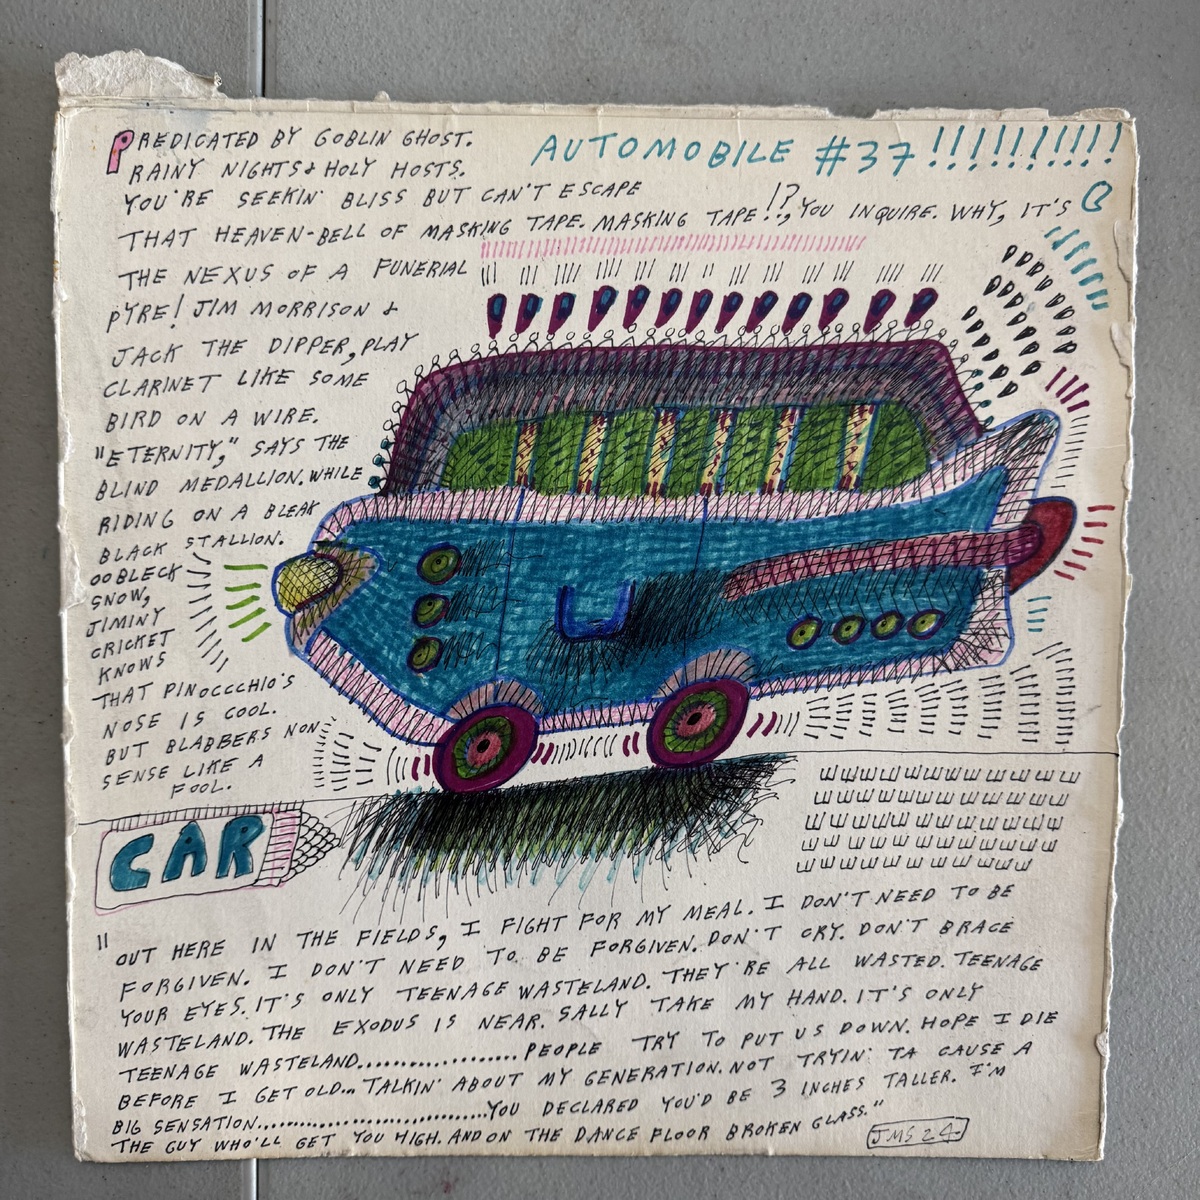 AUTOMOBILE #37!!!!!!!!!!
PREDICATED BY GOBLIN GHOST.
RAINY NIGHTS & HOLY HOSTS.
YOU'RE SEEKIN' BLISS BUT CAN'T ESCAPE
THAT HEAVEN-BELL OF MASKING TAPE. MASKING TAPE!?, YOU INQUIRE. WHY, IT'S
THE NEXUS OF A FUNERIAL
PYRE! JIM MORRISON &
JACK THE DIPPER, PLAY
CLARINET LIKE SOME
BIRD ON A WIRE.
"ETERNITY," SAYS THE
BLIND MEDALLION. WHILE
RIDING ON A BLEAK
BLACK STALLION.
OOBLECK
SNOW,
JIMINY
CRICKET
KNOWS
THAT PINOCCCHIO'S
NOSE IS COOL.
BUT BLABBERS NON-
SENSE LIKE A
FOOL.
CAR
"OUT HERE IN THE FIELDS, I FIGHT FOR MY MEAL. I DON'T NEED TO BE
FORGIVEN. I DON'T NEED TO BE FORGIVEN. DON'T CRY. DON'T BRACE
YOUR EYES. IT'S ONLY TEENAGE WASTELAND. THEY'RE ALL WASTED. TEENAGE
WASTELAND. THE EXODUS IS NEAR. SALLY TAKE MY HAND. IT'S ONLY
TEENAGE WASTELAND................... PEOPLE TRY TO PUT US DOWN. HOPE I DIE
BEFORE I GET OLD... TALKIN' ABOUT MY GENERATION. NOT TRYIN' TA CAUSE A
BIG SENSATION...........................YOU DECLARED YOU'D BE 3 INCHES TALLER. I'M
THE GUY WHO'LL GET YOU HIGH. AND ON THE DANCE FLOOR BROKEN GLASS."
JMS 24.